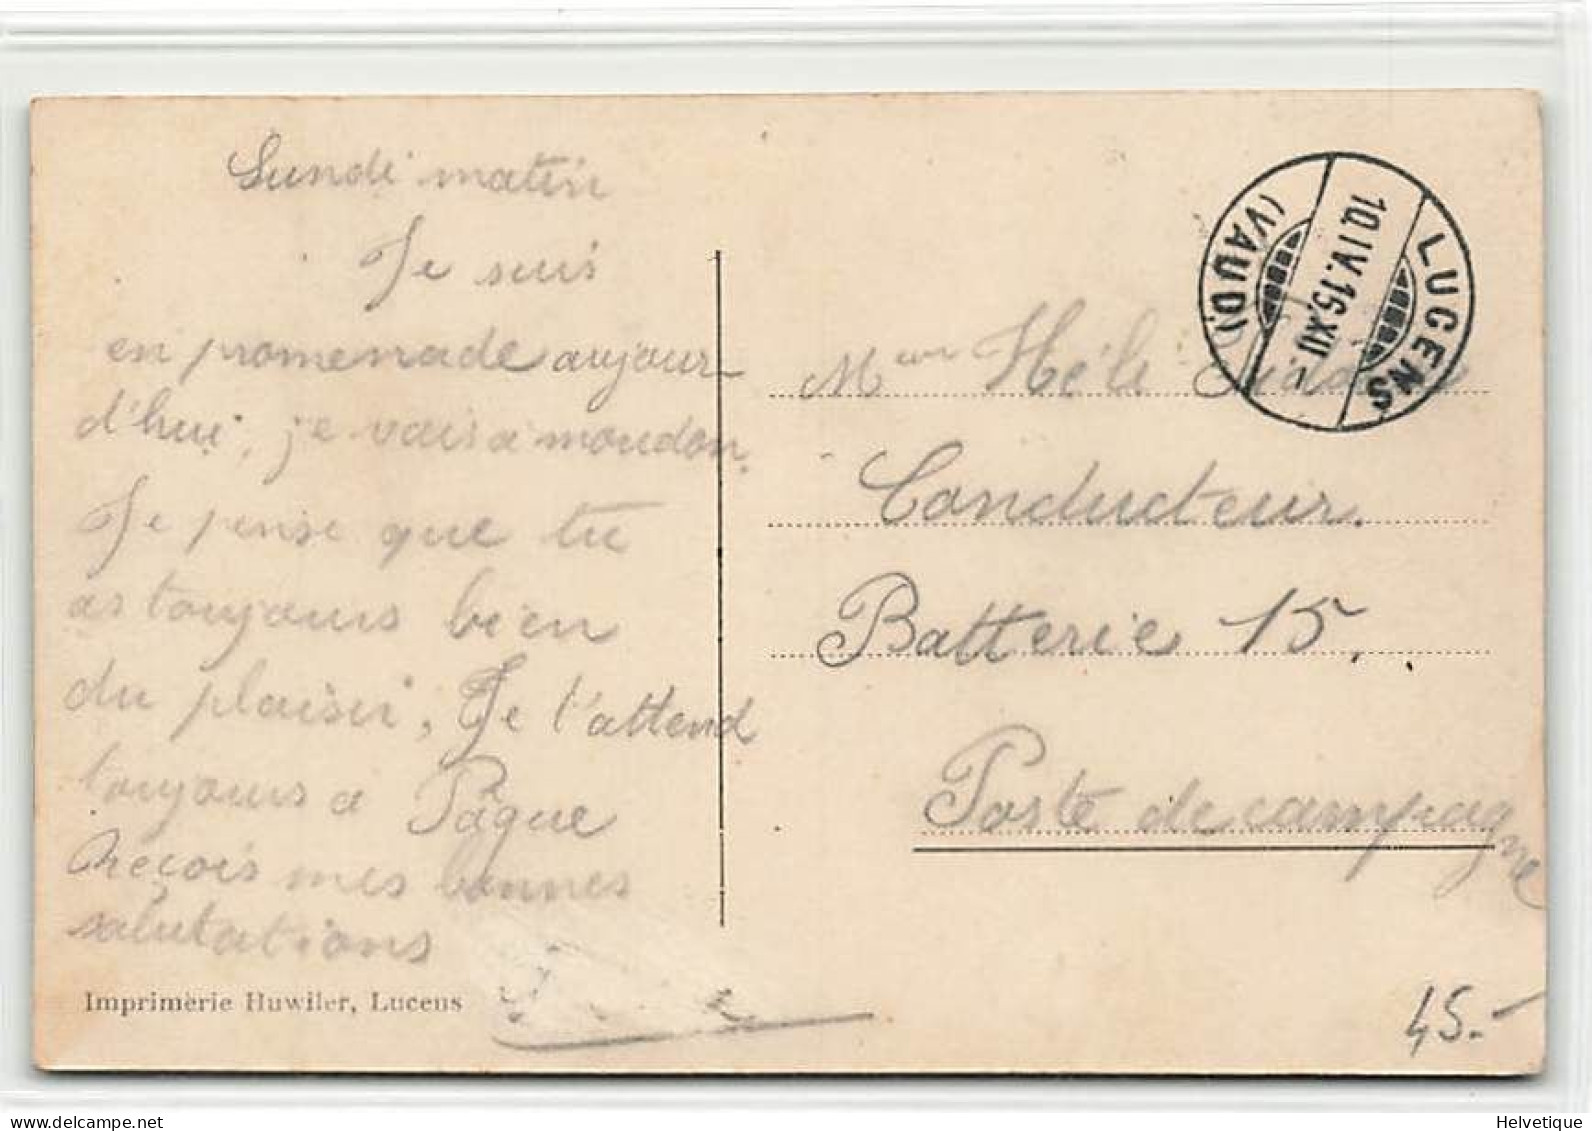 Lundi matin
Je suis
en promenade aujour
d'hui, je vais a moudon.
Je pense que tu
as toujours bien
du plaisir, Je t'attend
toujours a Pâque
Reçois mes bonnes
salutations
Imprimerie Huwiler, Lucens
LUCENS
10.IV.16.XII.
(VAUD)
Conducteur.
Batterie 15.
Poste de campagne
45.-
www.delcampe.net
Helvetique